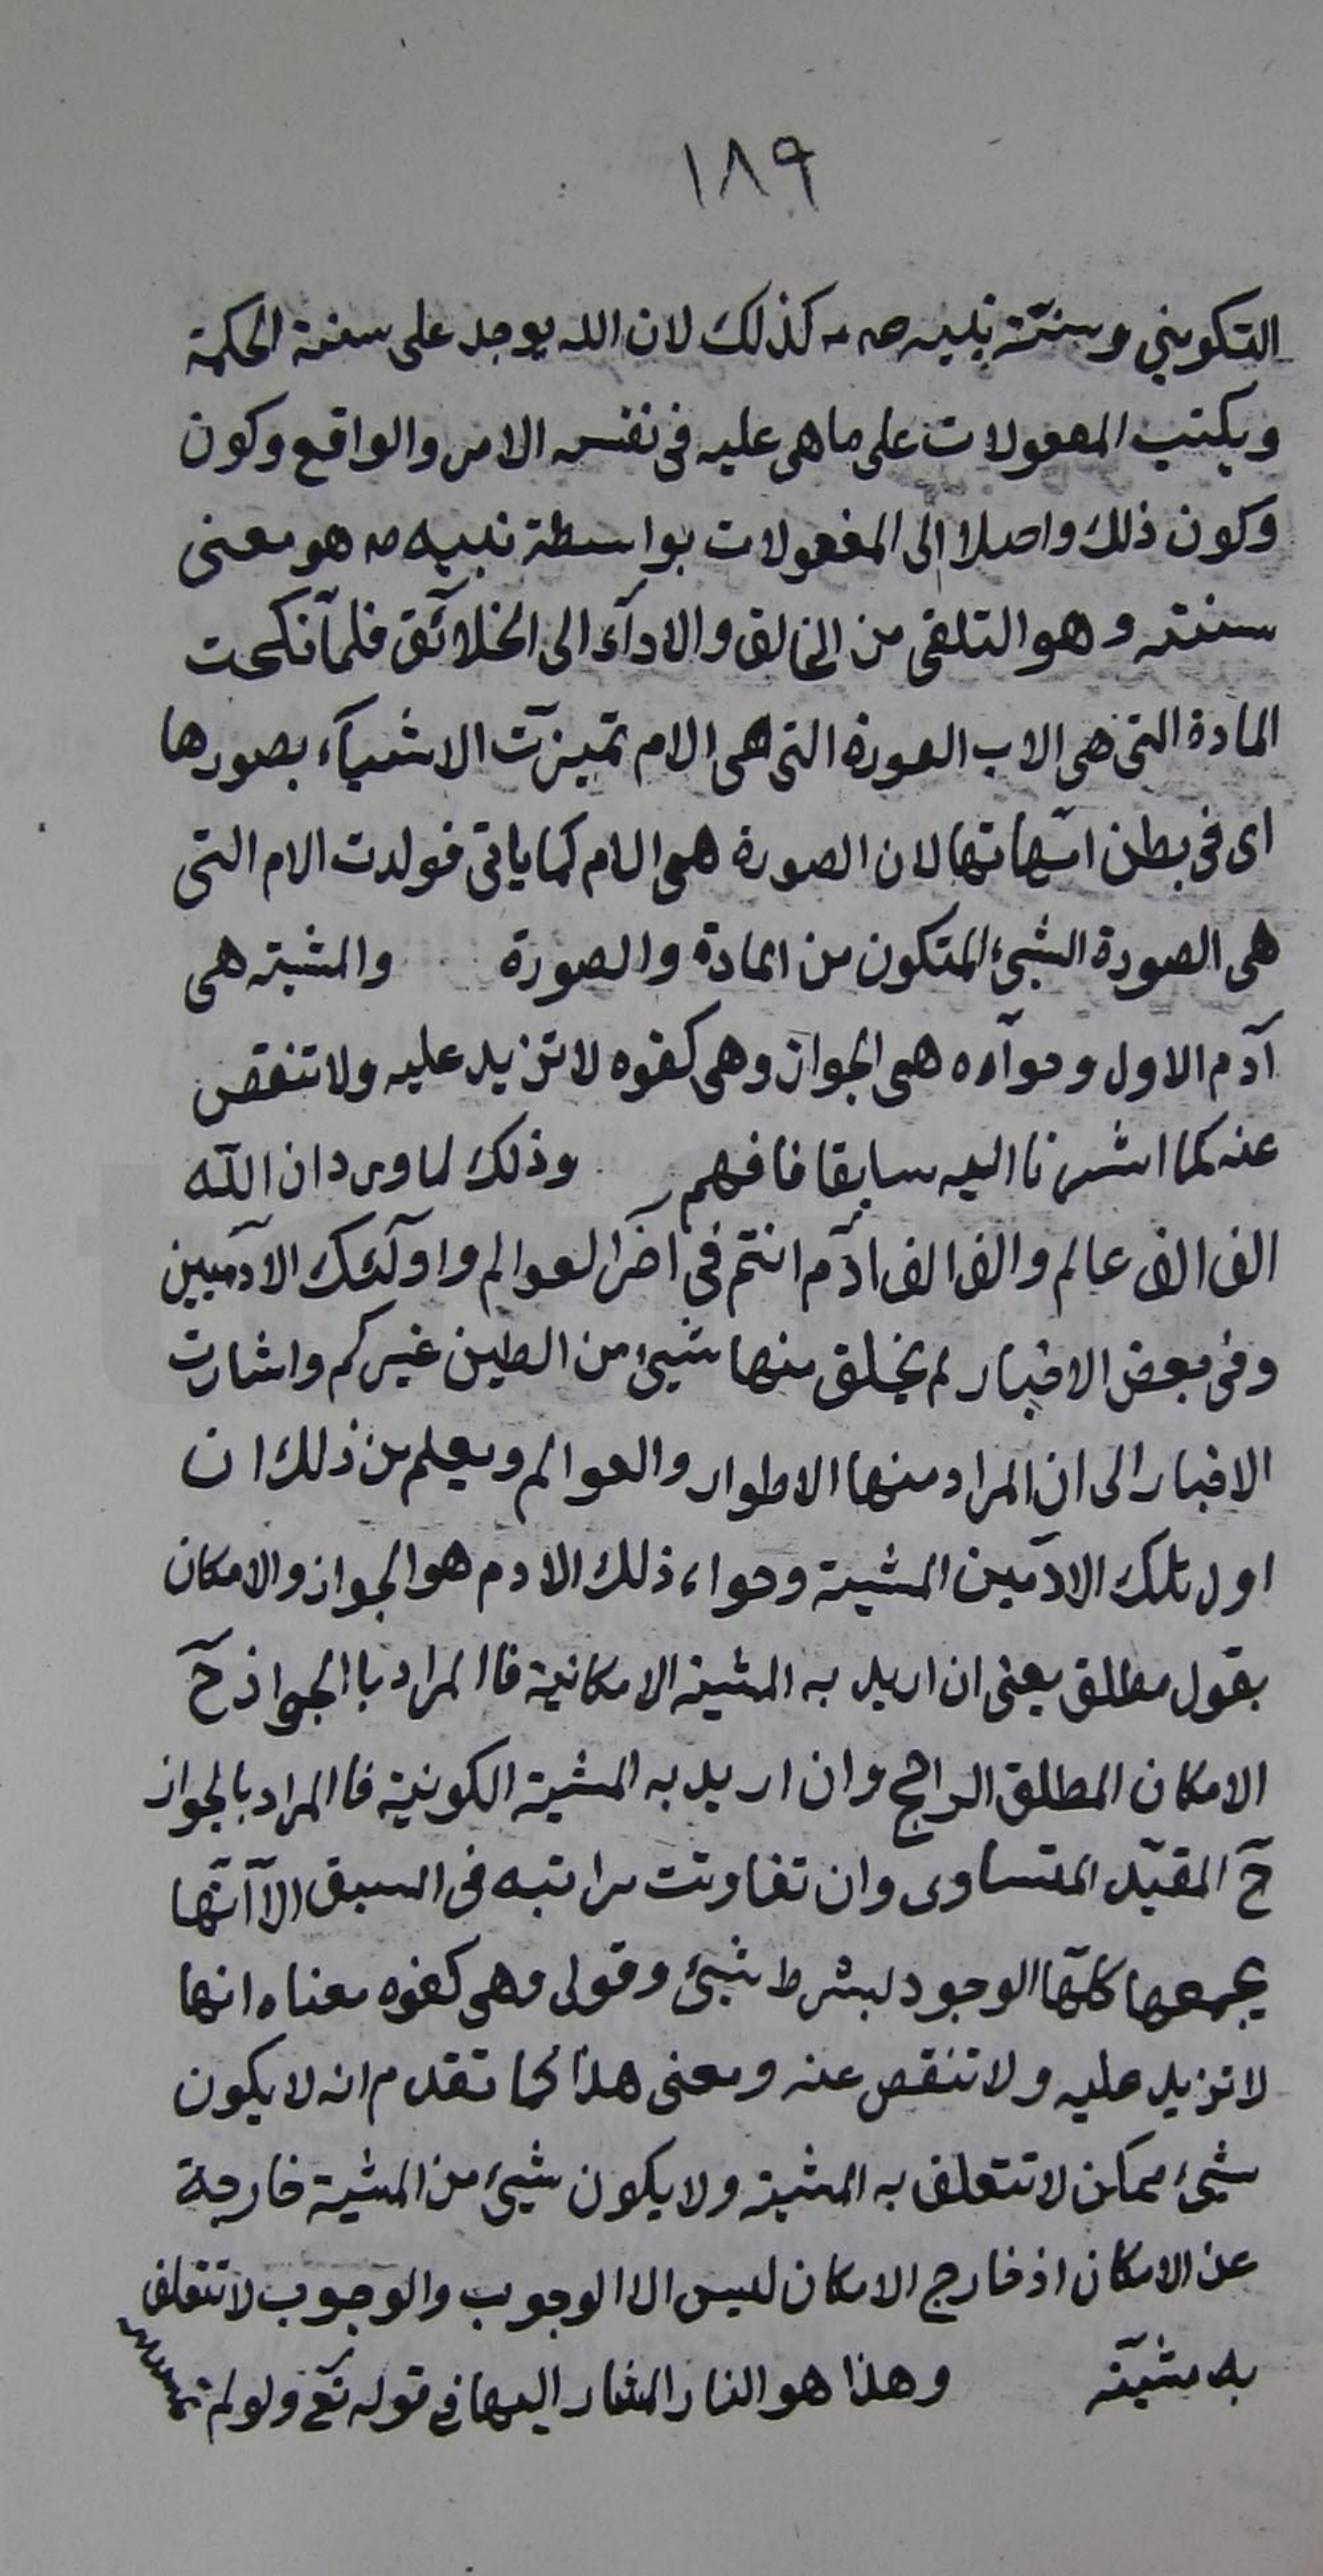 ١٨٩
التكويني وسنّة نبليه صه كذلك لان الله يوجد على سنة الحكمة
ويكتب المعمولات على ما هى عليه فى نفس الامر والواقع وكون
وكون ذلك واصلا الى المفعولات بواسطة نبيه صه هو معنى
سنته وهو التلقى من الخالق والادآء الى الخلائق فلمآ نكحت
المادة التى هى الاب الصورة التى هى الام تميزت الاشيآء بصورها
اى فى بطن امّهاتها لان الصورة هى الام كما ياتى فولدت الام التى
هى الصورة الشيئ المتكون من المادة والصورة والمشية هى
آدم الاول وحوآءه هى الجواز وهى كفوه لا تزيد عليه ولا تنقص
عنه كما اشرنا اليه سابقا فافهم وذلك لما ورد ان الله
الف الف عالم والف الف ادم انتم فى اخر العوالم واولئك الآدميين
وفى بعض الاخبار لم يخلق منها شيئ من الطين غيركم واشارت
الاخبار الى ان المراد منها الاطوار والعوالم ويعلم من ذلك ان
اول تلك الادميين المشية وحواء ذلك الادم هو الجواز والامكان
بقول مطلق يعنى ان اريد به المشية الامكانية فاالمراد باالجواز حّ
الامكان المطلق الراجح وان اريد به المشية الكونية فاالمراد بالجواز
حّ المقيّد المتساوى وان تفاوتت مراتبه فى السبق الآ انّها
يجمعها كلّها الوجود لبشرط شيئ وقولى وهى كفوه معناه انها
لا تزيد عليه ولا تنقص عنه ومعنى هذا كما تقدم انه لا يكون
شيئ ممكن لا تتعلق به المشية ولا يكون شيئ من المشية خارجة
عن الامكان اذ خارج الامكان ليس الا الوجوب والوجوب لا تتعلق
به مشية وهذا هو النار المشار اليها فى قوله تعّ ولو لم تمسسه